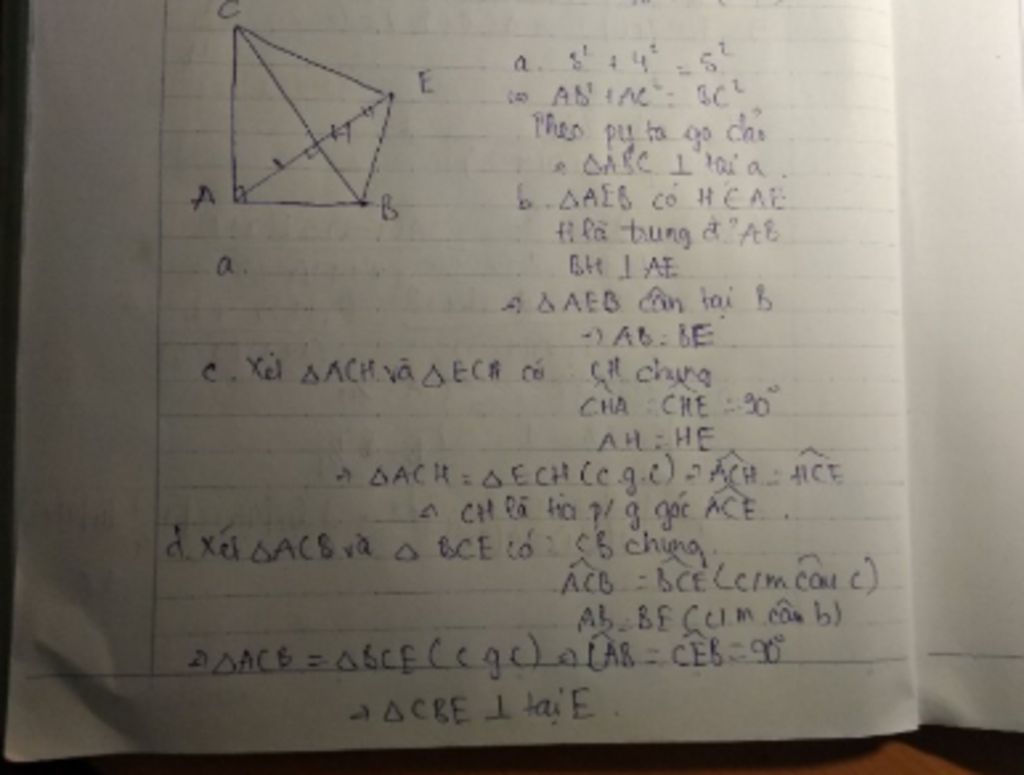 C
E
H
A
B
a. 3² + 4² = 5²
⇒ AB² + AC² = BC²
Theo pytago đảo
⇒ △ABC ⊥ tại a.
b. △AEB có H ∈ AE
H là trung đ² AE
BH ⊥ AE
⇒ △AEB cân tại B
→ AB = BE
a.
c. Xét △ACH và △ECH có CH chung
CHA = CHE = 90°
AH = HE
→ △ACH = △ECH (c.g.c) → ACH = HCE
CH là tia p/g góc ACE.
d. Xét △ACB và △BCE có: CB chung.
ACB = BCE (c/m câu c)
AB = BE (c/m câu b)
→ △ACB = △BCE (c g c) → CAB = CEB = 90°
→ △CBE ⊥ tại E.